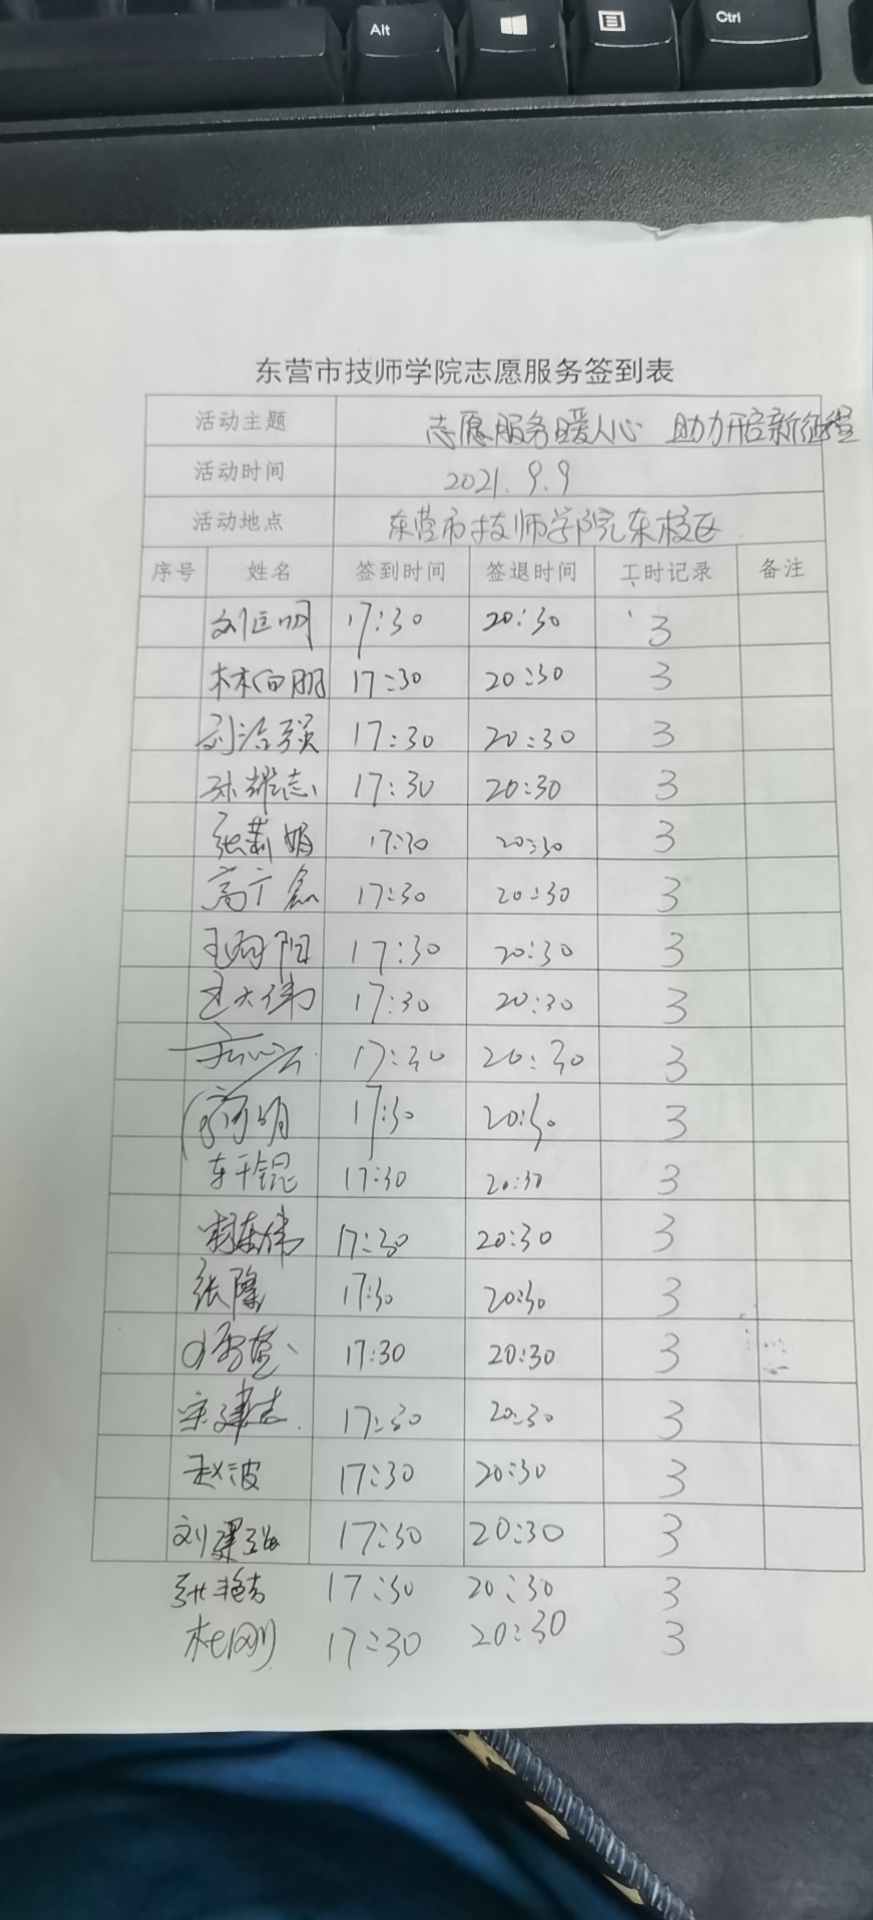 Alt
Ctrl
东营市技师学院志愿服务签到表
活动主题 志愿服务暖人心 助力开启新征程
活动时间 2021.9.9
活动地点 东营市技师学院东校区
序号 姓名 签到时间 签退时间 工时记录 备注
17:30 20:30 3
林向朋 17:30 20:30 3
刘洪强 17:30 20:30 3
孙耀志 17:30 20:30 3
张莉娟 17:30 20:30 3
高广鑫 17:30 20:30 3
王向阳 17:30 20:30 3
王大伟 17:30 20:30 3
17:30 20:30 3
17:30 20:30 3
17:30 20:30 3
17:30 20:30 3
张隆 17:30 20:30 3
17:30 20:30 3
宋建志 17:30 20:30 3
赵波 17:30 20:30 3
刘 17:30 20:30 3
张艳吉 17:30 20:30 3
杜刚 17:30 20:30 3